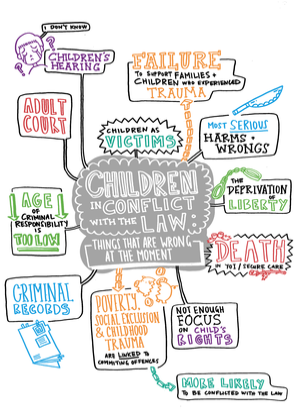 I DON'T KNOW
CHILDREN'S
HEARING
FAILURE
TO SUPPORT FAMILIES +
CHILDREN WHO EXPERIENCED
TRAUMA
ADULT
COURT
CHILDREN AS
VICTIMS
MOST SERIOUS
HARMS +
WRONGS
CHILDREN
IN CONFLICT
WITH THE
LAW:
THINGS THAT ARE WRONG
AT THE MOMENT
AGE
OF CRIMINAL
RESPONSIBILITY
IS
TOO LOW
THE
DEPRIVATION
OF
LIBERTY
DEATH
IN YOI / SECURE CARE
CRIMINAL
RECORDS
POVERTY,
SOCIAL EXCLUSION
& CHILDHOOD
TRAUMA
ARE LINKED TO
COMMITING OFFENCES
NOT ENOUGH
FOCUS
ON CHILD'S
RIGHTS
MORE LIKELY
TO BE CONFLICTED WITH THE LAW